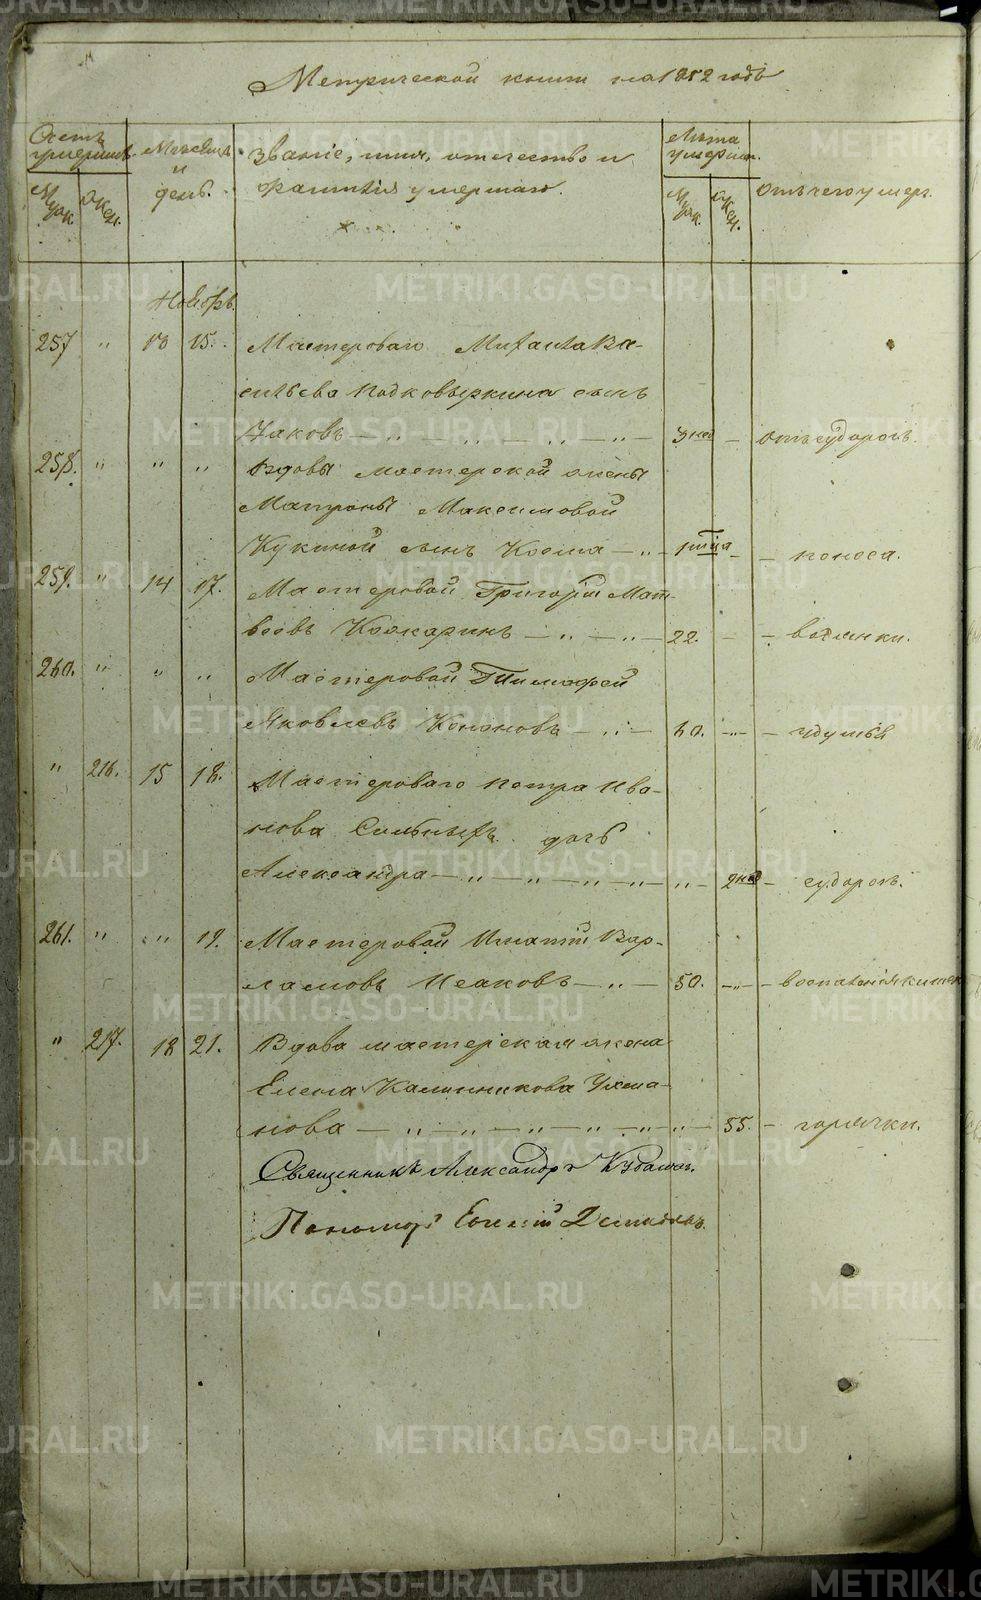 Метрической книги на 1852 годъ
Счетъ умершихъ. Мѣсяцъ и день. Званіе, имя, отчество и фамилія умершаго. Лѣта умершаго. Отъ чего умеръ.
Муж. Жен. Муж. Жен.
Ноябрь.
257 " 13 15. Мастероваго Михаила Ва-
сильева Подковыркина сынъ
Іаковъ — " — " — " — " — 3 нед — отъ судорогъ.
258. " " " Вдовы мастерской жены
Матроны Максимовой
Кукиной сынъ Косма — " — — поноса.
259. " 14 17. Мастеровой Григорій Мат-
вѣевъ Кожаринъ — " — " — 22. — — водянки.
260. " " " Мастеровой Тимофей
Яковлевъ Кононовъ — " — 60. — " — — удушья
" 216. 15 18. Мастероваго Петра Ива-
нова дочь
Александра — " — " — " — " — " — 2 нед — судорогъ.
261. " " 19. Мастеровой Игнатій Вар-
ламовъ Исаковъ — " — 50. — " — — воспаленія кишек
" 217. 18 21. Вдова мастерская жена
Елена Калинникова Ухма-
нова — " — " — " — " — " — " — 55. — горячки.
Священникъ Александръ
Пономарь Евгеній